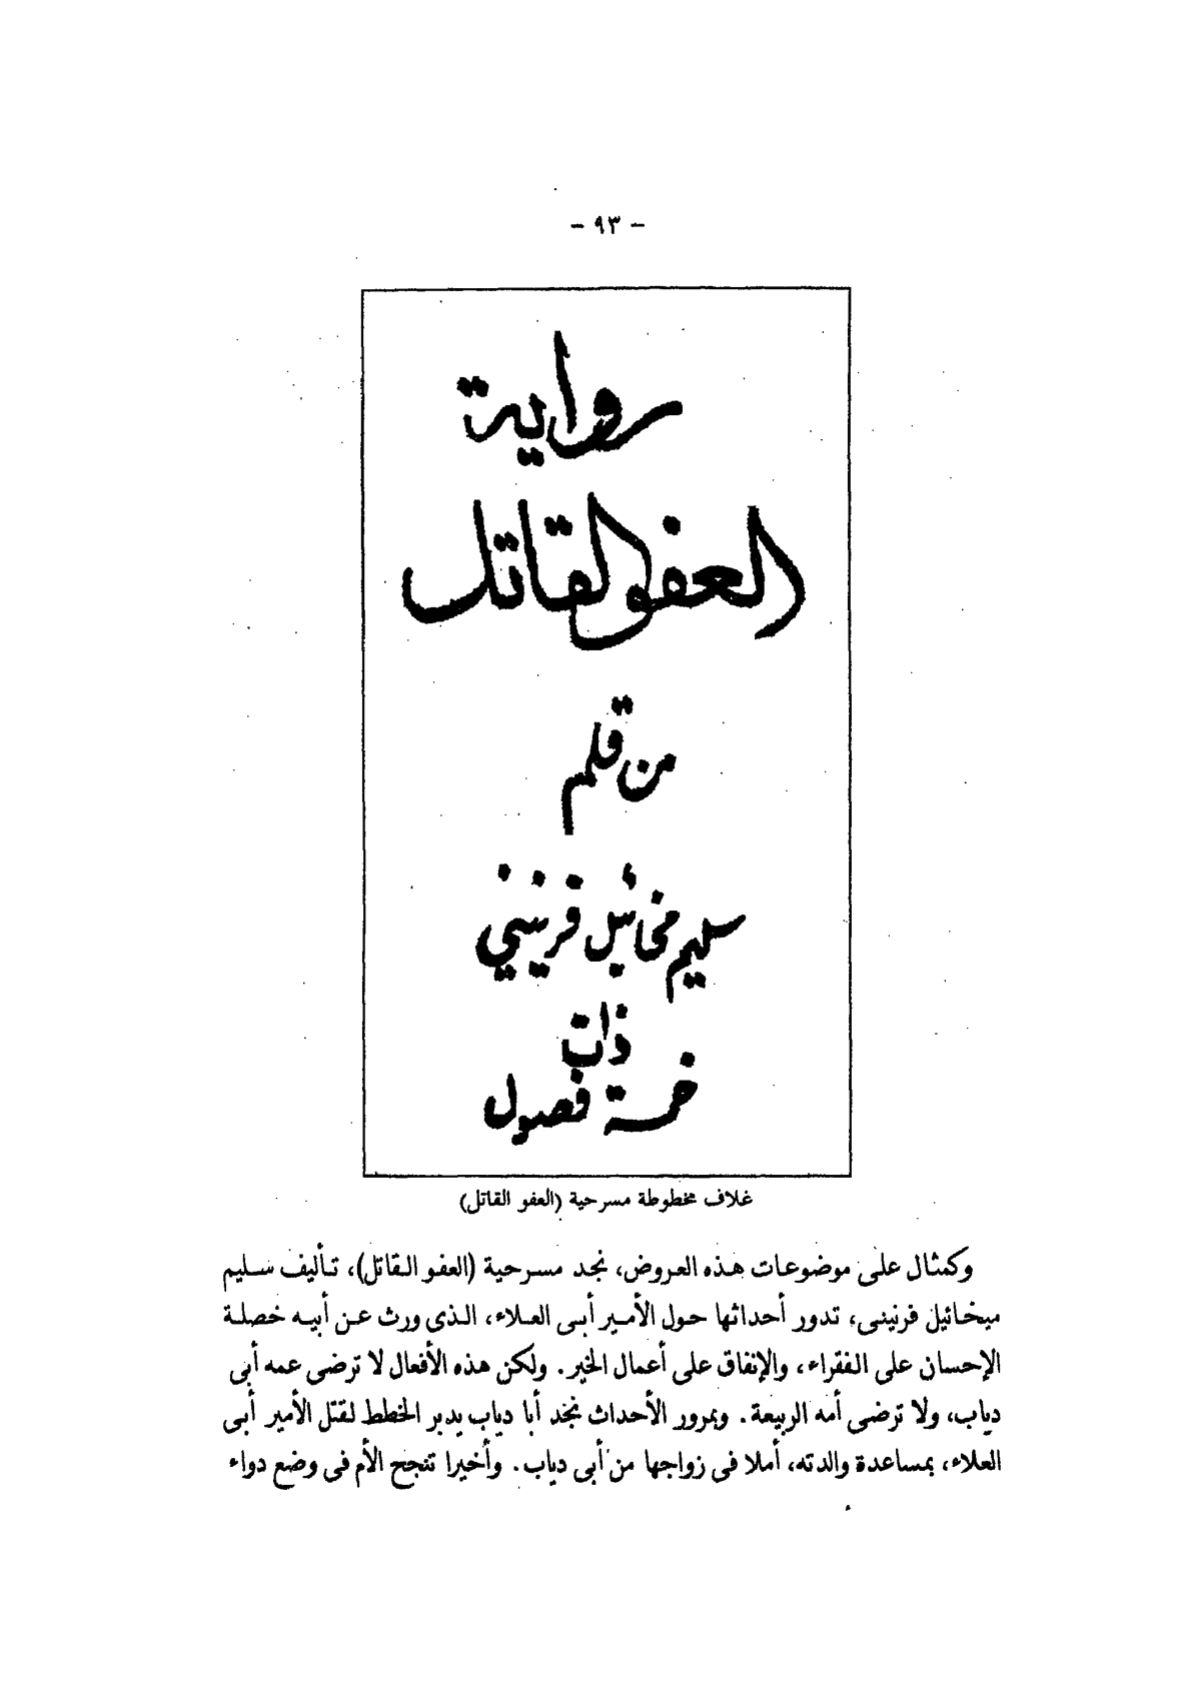 - ٩٣ -
رواية
العفو القاتل
من قلم
سليم مخائيل فرنيني
ذات
خمسة فصول
غلاف مخطوطة مسرحية (العفو القاتل)
وكمثال على موضوعات هذه العروض، نجد مسرحية (العفو القاتل)، تأليف سليم
ميخائيل فرنينى، تدور أحداثها حول الأمير أبى العلاء، الذى ورث عن أبيه خصلة
الإحسان على الفقراء، والإنفاق على أعمال الخير. ولكن هذه الأفعال لا ترضى عمه أبى
دياب، ولا ترضى أمه الربيعة. وبمرور الأحداث نجد أبا دياب يدبر الخطط لقتل الأمير أبى
العلاء، بمساعدة والدته، أملا فى زواجها من أبى دياب. وأخيرا تنجح الأم فى وضع دواء